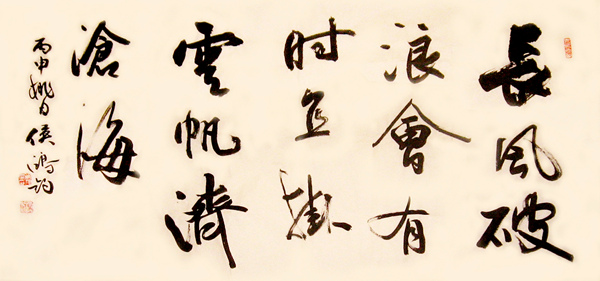 長風破
浪會有
时直掛
雲帆濟
滄海
丙申
侯鴻